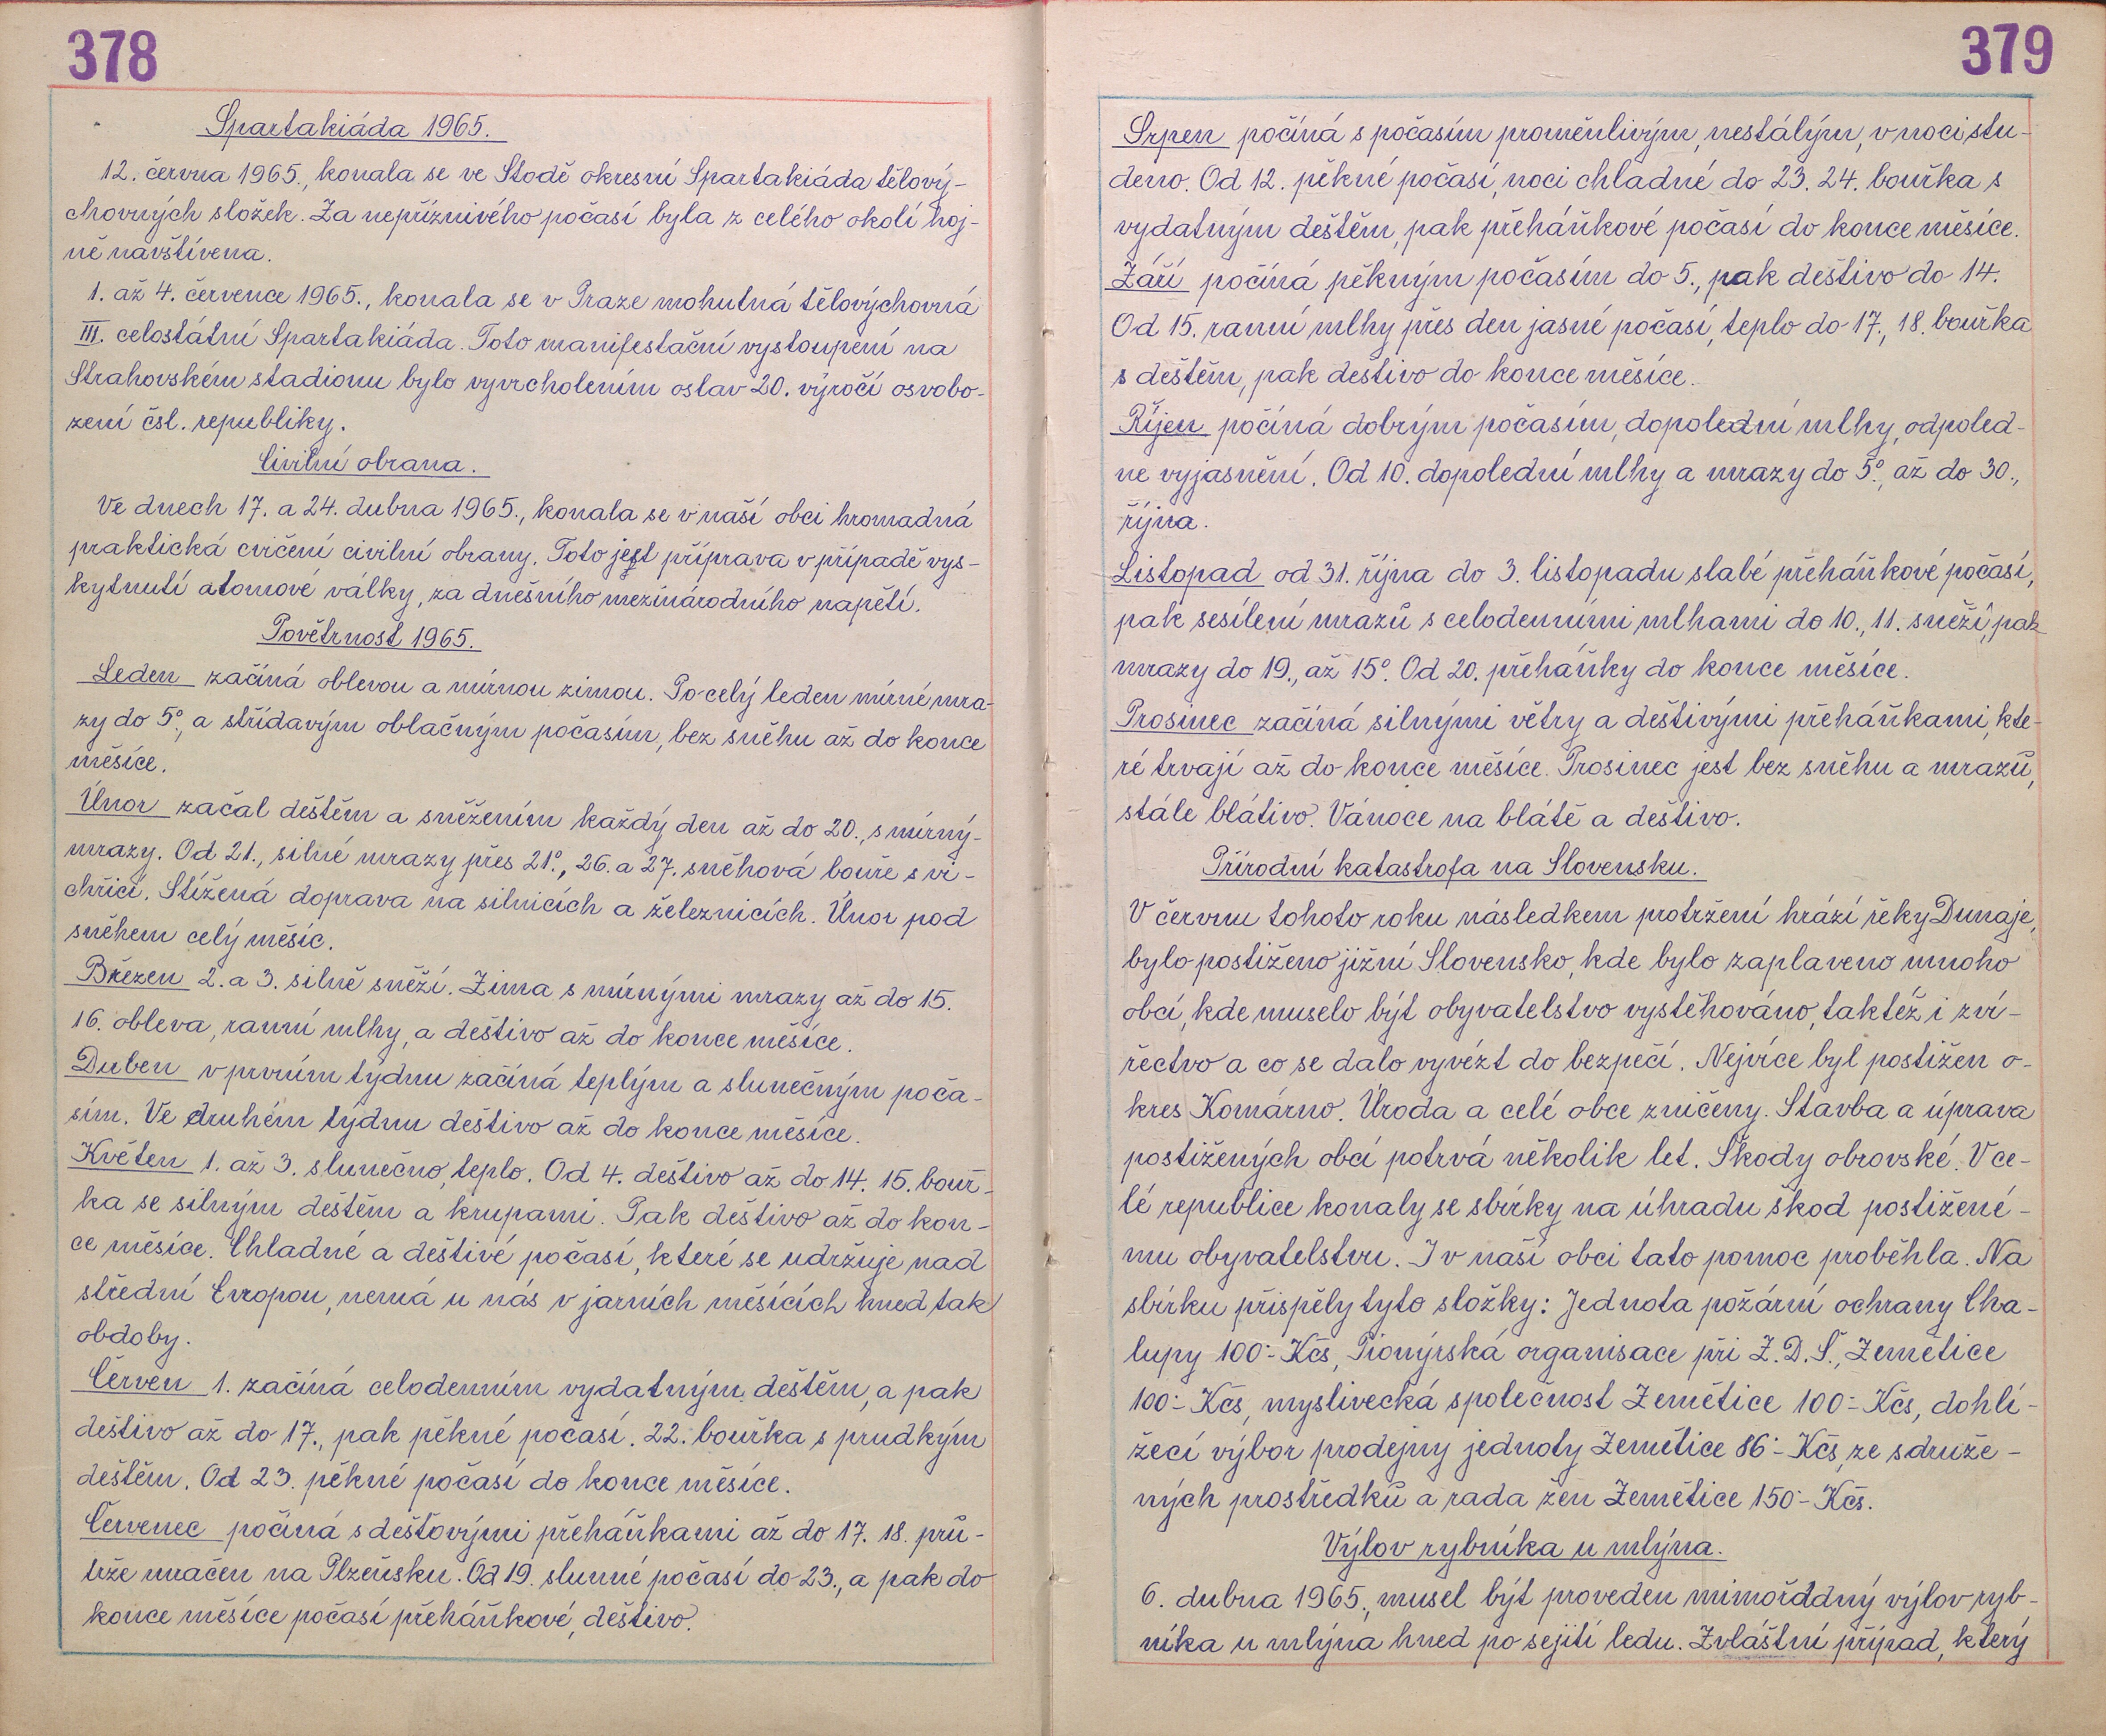 378
Spartakiáda 1965.
12. června 1965., konala se ve Stodě okresní Spartakiáda tělový-
chovných složek. Za nepříznivého počasí byla z celého okolí hoj-
ně navštívena.
1. až 4. července 1965., konala se v Praze mohutná tělovýchovná
III. celostátní Spartakiáda. Toto manifestační vystoupení na
Strahovském stadionu bylo vyvrcholením oslav 20. výročí osvobo-
zení čsl. republiky.
Civilní obrana.
Ve dnech 17. a 24. dubna 1965., konala se v naší obci hromadná
praktická cvičení civilní obrany. Toto jest příprava v případě vys-
kytnutí atomové války, za dnešního mezinárodního napětí.
Povětrnost 1965.
Leden začíná oblevou a mírnou zimou. Po celý leden mírné mra-
zy do 5°, a střídavým oblačným počasím, bez sněhu až do konce
měsíce.
Únor začal deštěm a sněžením každý den až do 20., s mírný-
mrazy. Od 21., silné mrazy přes 21°., 26. a 27. sněhová bouře s vi-
chřicí. Stížená doprava na silnicích a železnicích. Únor pod
sněhem celý měsíc.
Březen 2. a 3. silně sněží. Zima s mírnými mrazy až do 15.
16. obleva, ranní mlhy, a deštivo až do konce měsíce.
Duben v prvním týdnu začíná teplým a slunečným poča-
sím. Ve druhém týdnu deštivo až do konce měsíce.
Květen 1. až 3. slunečno, teplo. Od 4. deštivo až do 14. 15. bouř-
ka se silným deštěm a krupami. Pak deštivo až do kon-
ce měsíce. Chladné a deštivé počasí, které se udržuje nad
střední Evropou, nemá u nás v jarních měsících hned tak
obdoby.
Červen 1. začíná celodenním vydatným deštěm, a pak
deštivo až do 17., pak pěkné počasí. 22. bouřka s prudkým
deštěm. Od 23. pěkné počasí do konce měsíce.
Červenec počíná s dešťovými přeháňkami až do 17. 18. prů-
trže mračen na Plzeňsku. Od 19. slunné počasí do 23., a pak do
konce měsíce počasí přeháňkové, deštivo.
379
Srpen počíná s počasím proměnlivým, nestálým, v noci stu-
deno. Od 12. pěkné počasí, noci chladné do 23. 24. bouřka s
vydatným deštěm, pak přeháňkové počasí do konce měsíce.
Září počíná pěkným počasím do 5., pak deštivo do 14.
Od 15. ranní mlhy přes den jasné počasí, teplo do 17., 18. bouřka
s deštěm, pak deštivo do konce měsíce.
Říjen počíná dobrým počasím, dopolední mlhy, odpoled-
ne vyjasnění. Od 10. dopolední mlhy a mrazy do 5°, až do 30.,
října.
Listopad od 31. října do 3. listopadu slabé přeháňkové počasí,
pak sesílení mrazů s celodenními mlhami do 10., 11. sněží, pak
mrazy do 19., až 15°. Od 20. přeháňky do konce měsíce.
Prosinec začíná silnými větry a deštivými přeháňkami, kte-
ré trvají až do konce měsíce. Prosinec jest bez sněhu a mrazů,
stále blátivo. Vánoce na blátě a deštivo.
Přírodní katastrofa na Slovensku.
V červnu tohoto roku následkem protržení hrází řeky Dunaje,
bylo postiženo jižní Slovensko, kde bylo zaplaveno mnoho
obcí, kde muselo být obyvatelstvo vystěhováno, taktéž i zví-
řectvo a co se dalo vyvézt do bezpečí. Nejvíce byl postižen o-
kres Komárno. Úroda a celé obce zničeny. Stavba a úprava
postižených obcí potrvá několik let. Škody obrovské. V ce-
lé republice konaly se sbírky na úhradu škod postižené-
mu obyvatelstvu. I v naší obci tato pomoc proběhla. Na
sbírku přispěly tyto složky: Jednota požární ochrany Cha-
lupy 100.- Kčs, Pionýrská organisace při Z.D.Š., Zemětice
100.- Kčs, myslivecká společnost Zemětice 100.- Kčs, dohlí-
žecí výbor prodejny jednoty Zemětice 86.- Kčs, ze sdruže-
ných prostředků a rada žen Zemětice 150.- Kčs.
Výlov rybníka u mlýna.
6. dubna 1965., musel být proveden mimořddný výlov ryb-
níka u mlýna hned po sejití ledu. Zvláštní případ, který